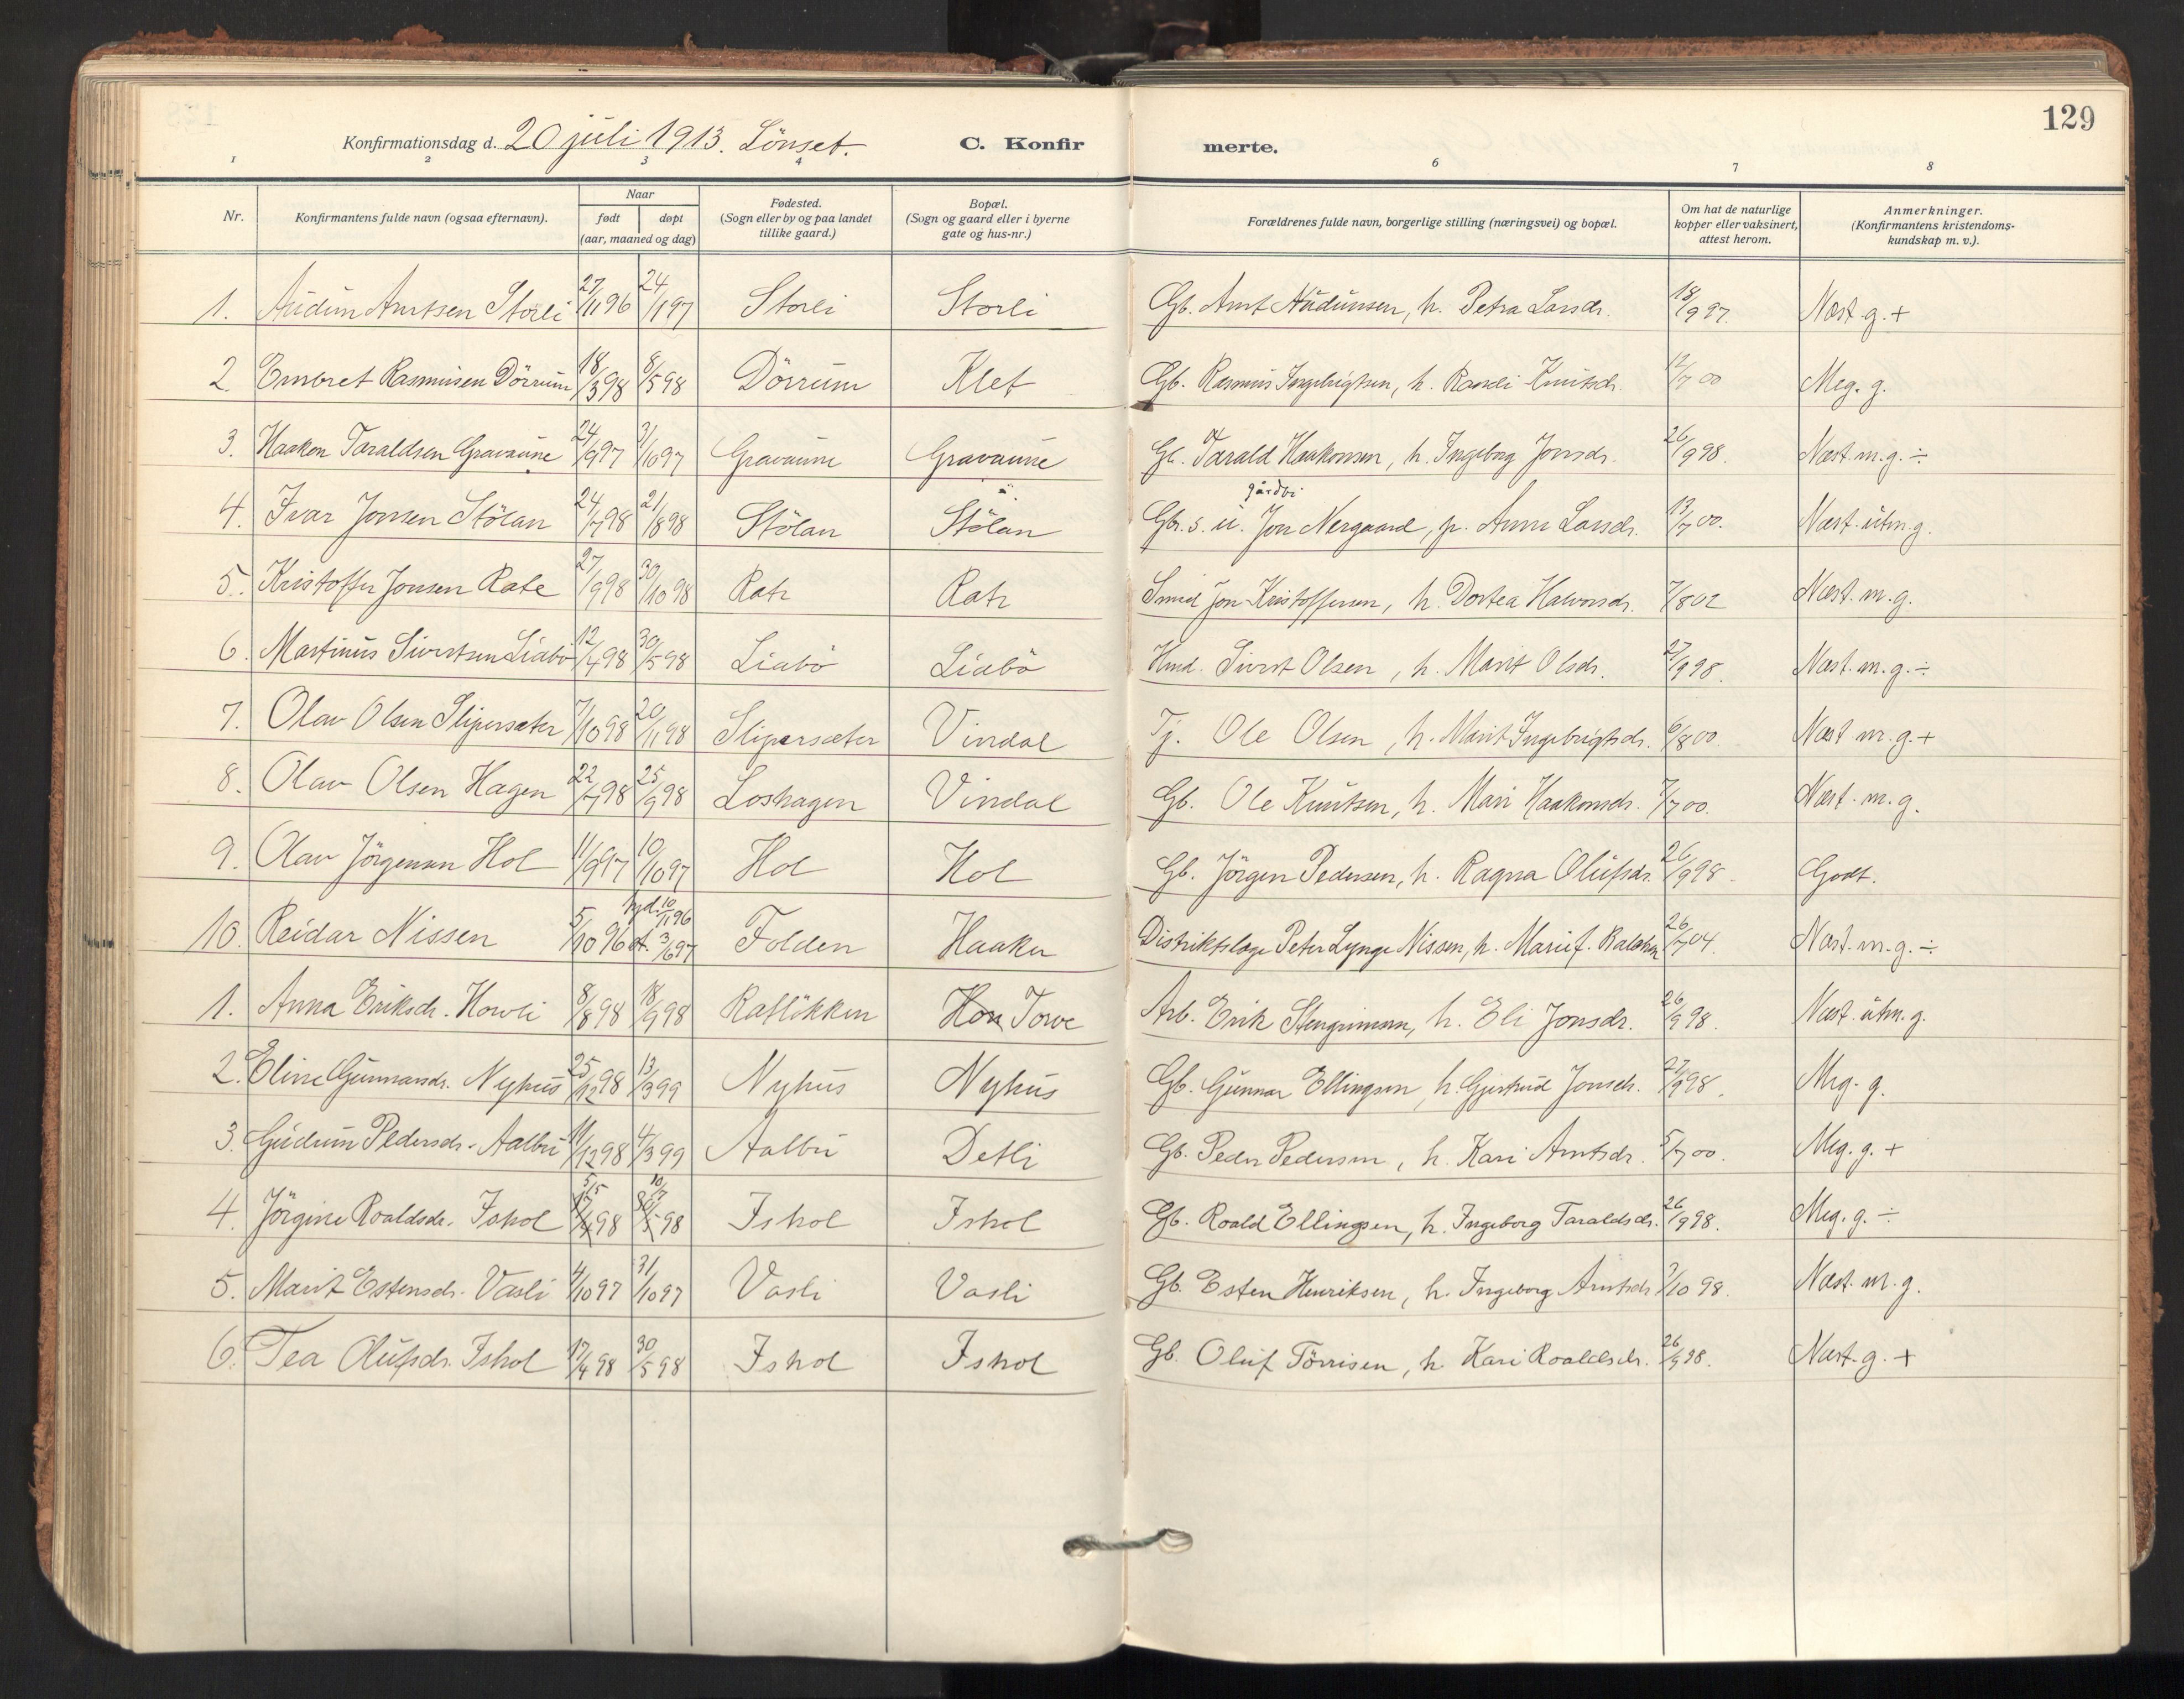 129
Konfirmationsdag d. 20 juli 1913. Lönset. C. Konfir merte.
1 2 3 4 6 7 8
Nr. Konfirmantens fulde navn (ogsaa efternavn). Naar født døpt (aar, maaned og dag) Fødested. (Sogn eller by og paa landet tillike gaard.) Bopæl. (Sogn og gaard eller i byerne gate og hus-nr.) Forældrenes fulde navn, borgerlige stilling (næringsvei) og bopæl. Om hat de naturlige kopper eller vaksinert, attest herom. Anmerkninger. (Konfirmantens kristendoms-kundskap m. v.).
1. Audun Arntsen Storli 27/11 96 24/1 97 Storli Storli Gb. Arnt Audunsen, h. Petra Larsdr. 18/9 97. Næst g. +
2. Embret Rasmusen Dörrum 18/3 98 8/5 98 Dörrum Klet Gb. Rasmus Ingebrigtsen, h. Randi Knutsdr. 12/7 00 Meg. g.
3. Haakon Taraldsen Gravaune 24/9 97 31/10 97 Gravaune Gravaune Gb. Tarald Haakonsen, h. Ingeborg Jonsdr. 26/9 98. Næst. m.g. ÷
4. Ivar Jonsen Stölan 24/7 98 21/8 98 Stölan Stölan Gbr. s. u. gårdbr Jon Nergaard, p. Anne Larsdr. 13/7 00. Næst. utm. g.
5. Kristoffer Jonsen Rate 27/9 98 30/10 98 Rate Rate Smed Jon Kristoffersen, h. Dortea Halvorsdr. 7/8 02 Næst. m. g.
6. Martinus Sivertsen Liabö 12/4 98 30/5 98 Liabö Liabö Hmd. Sivert Olsen, h. Marit Olsdr. 27/9 98. Næst. m. g. ÷
7. Olav Olsen Slipersæter 7/10 98 20/11 98 Slipersæter Vindal Tj. Ole Olsen, h. Marit Ingebrigtsdr. 6/8 00. Næst m. g. +
8. Olav Olsen Hagen 22/7 98 25/9 98 Loshagen Vindal Gb. Ole Knutsen, h. Mari Haakonsdr. 7/7 00. Næst. m. g.
9. Olav Jörgensen Hol 11/9 97 10/10 97 Hol Hol Gb. Jörgen Pedersen, h. Ragna Olufsdr. 26/9 98. Godt.
10. Reidar Nissen 5/10 96 hjd. 10/11 96 st. 3/6 97 Folden Haaker Distriktslæge Peter Lynge Nissen, h. Marie f. 26/7 04. Næst. m. g. ÷
1. Anna Eriksdr. Hovli 8/8 98 18/9 98 Ratlökken Hov Torve Arb. Erik Stengrimsen, h. Eli Jonsdr. 26/9 98. Næst. utm. g.
2. Eline Gunnarsdr. Nyhus 25/12 98 13/3 99 Nyhus Nyhus Gb. Gunnar Ellingsen, h. Gjertrud Jonsdr. 27/9 98. Meg. g.
3. Gudrun Pedersdr. Aalbu 11/12 98 4/3 99 Aalbu Detli Gb. Peder Pedersen, h. Kari Arntsdr. 5/7 00. Meg. g. +
4. Jörgine Roaldsdr. Ishol 5/5 98 10/7 98 Ishol Ishol Gb. Roald Ellingsen, h. Ingeborg Taraldsdr. 26/9 98. Meg. g. ÷
5. Marit Estensdr. Vasli 4/10 97 31/10 97 Vasli Vasli Gb. Esten Henriksen, h. Ingeborg Arntsdr. 7/10 98. Næst. m. g.
6. Tea Olufsdr. Ishol 17/4 98 30/5 98 Ishol Ishol Gb. Oluf Törrisen, h. Kari Roaldsdr. 26/9 98. Næst. g. +